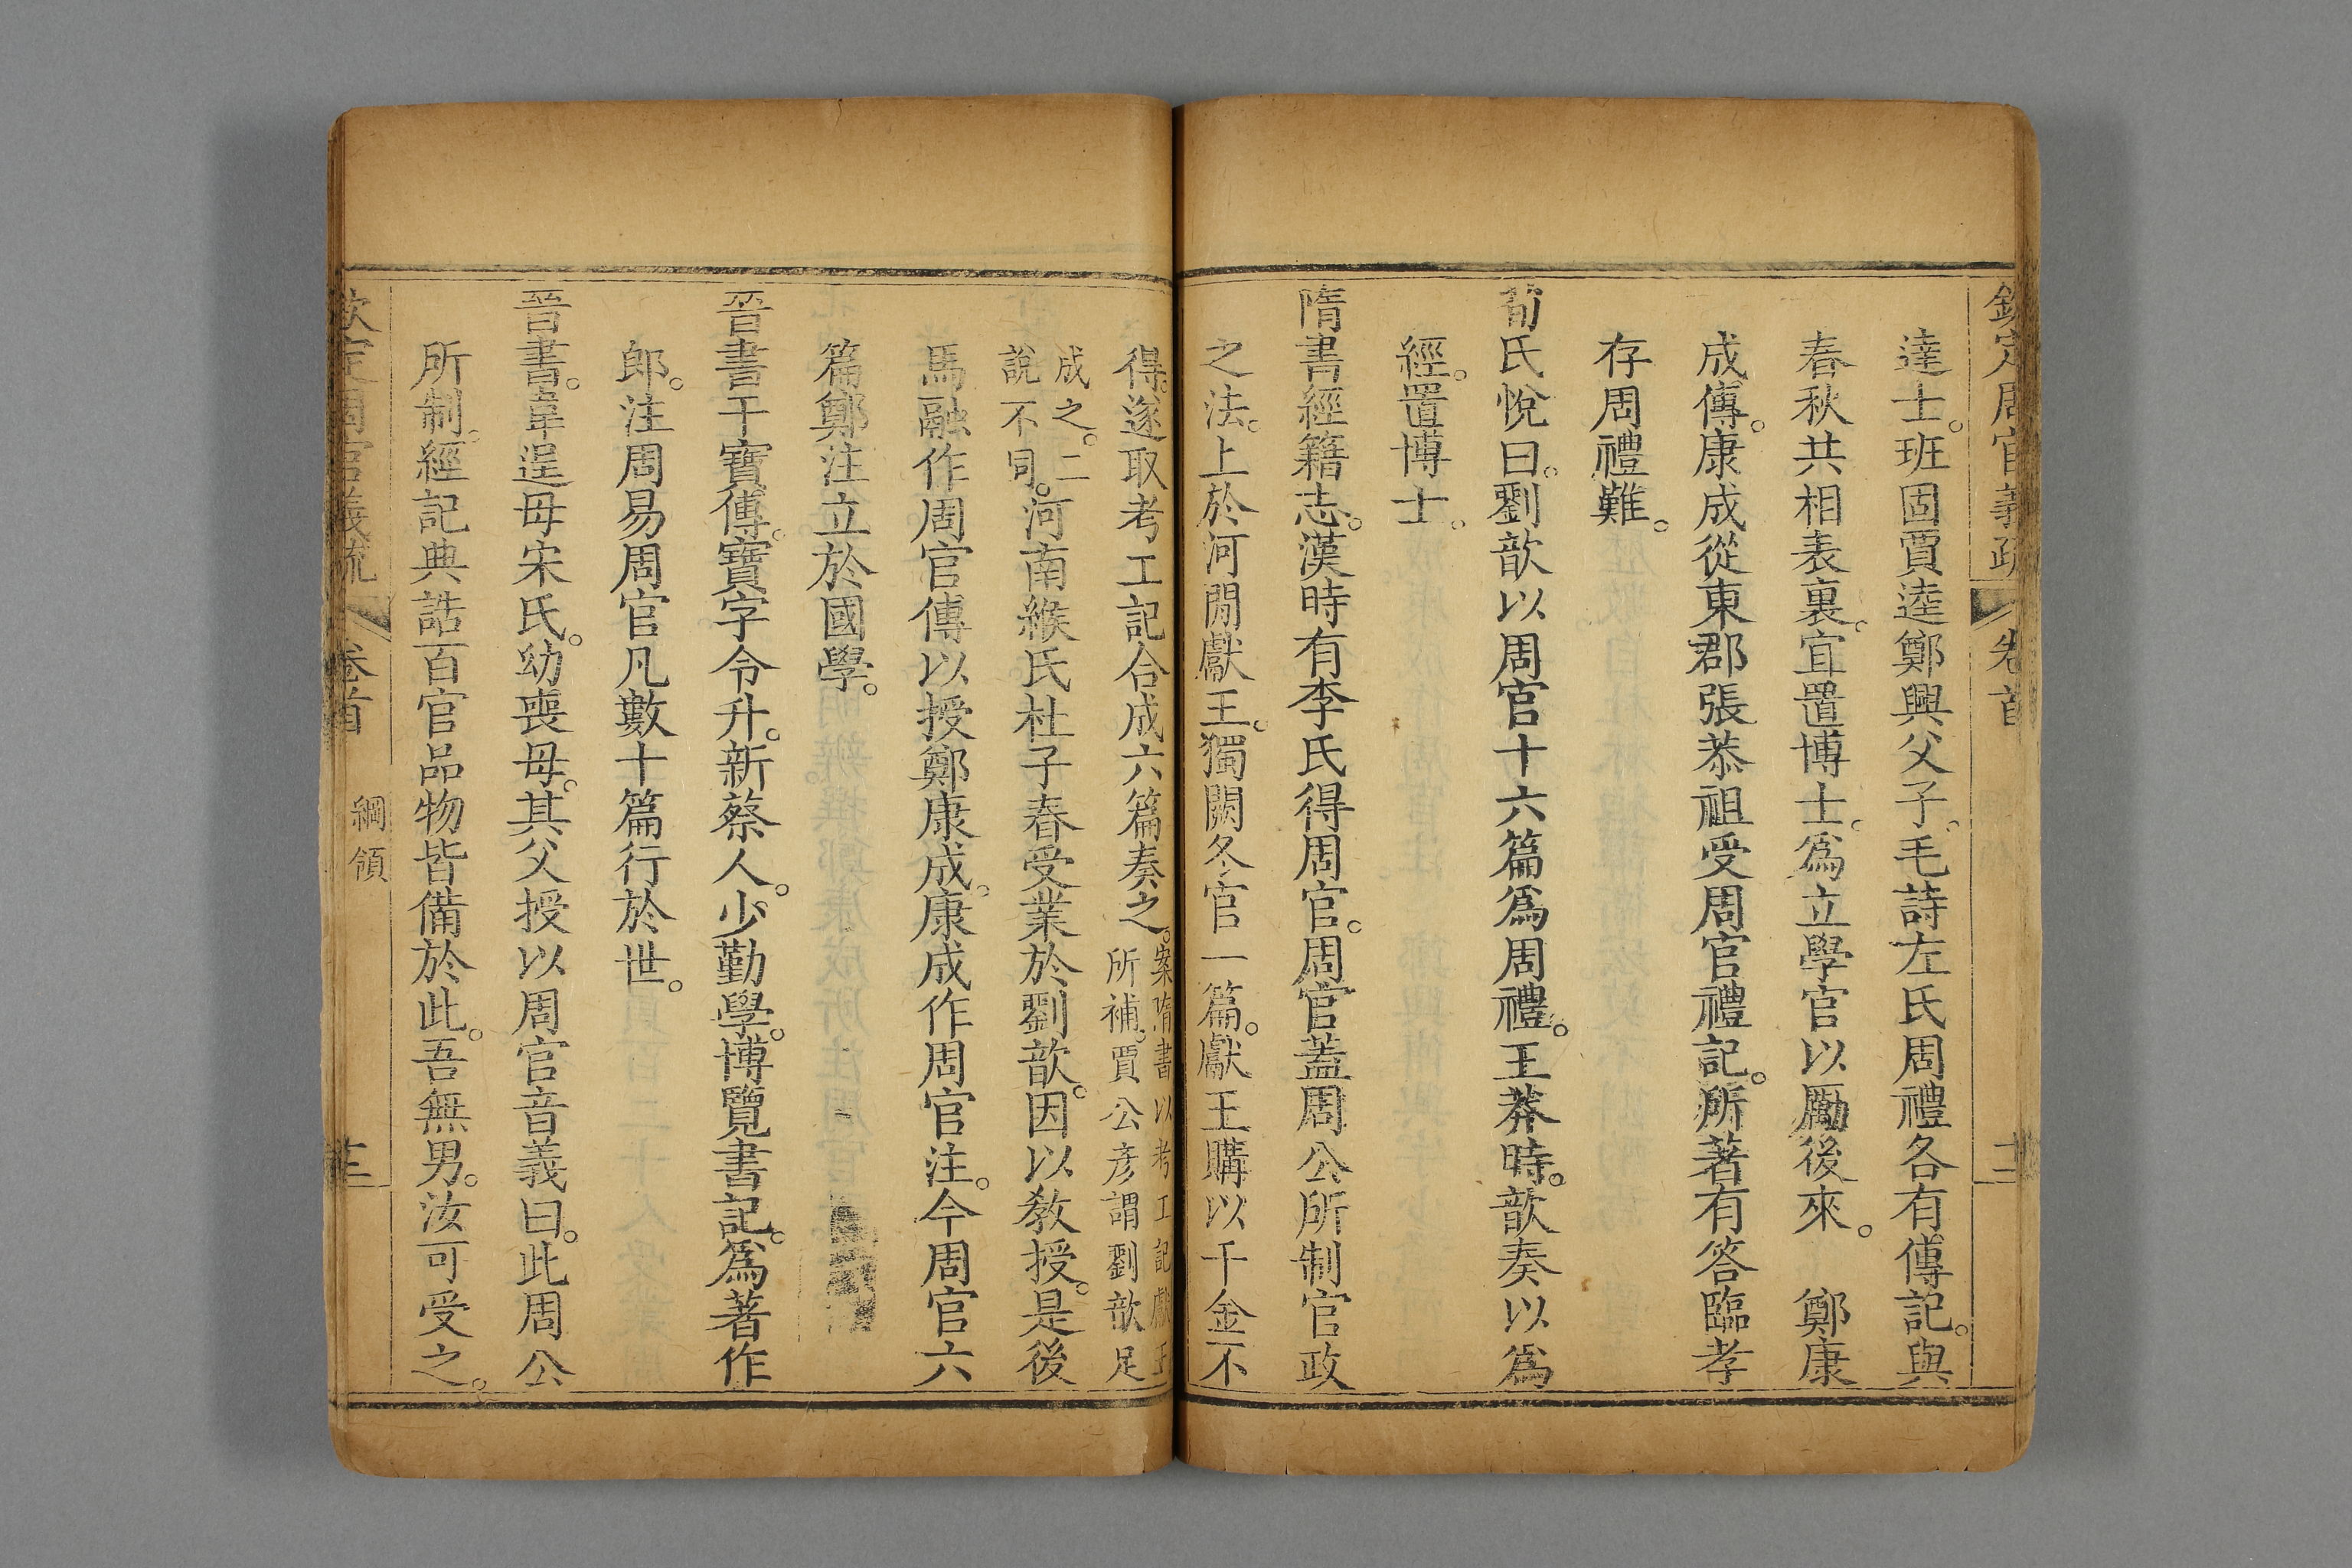 欽定周官義疏 卷首 十二
達士。班固賈逵鄭興父子。毛詩左氏周禮各有傳記。與
春秋共相表裏。宜置博士。爲立學官以勵後來。 鄭康
成傳。康成從東郡張恭祖受周官禮記。所著有答臨孝
存周禮難。
荀氏悅曰。劉歆以周官十六篇爲周禮。王莽時。歆奏以爲
經。置博士。
隋書經籍志。漢時有李氏得周官。周官蓋周公所制官政
之法。上於河閒獻王。獨闕冬官一篇。獻王購以千金不
得。遂取考工記合成六篇奏之。案隋書以考工記獻王
所補。賈公彥謂劉歆足
成之。二
說不同。河南緱氏杜子春受業於劉歆。因以敎授。是後
馬融作周官傳以授鄭康成。康成作周官注。今周官六
篇鄭注立於國學。
晉書干寶傳。寶字令升。新蔡人。少勤學。博覽書記。爲著作
郎。注周易周官凡數十篇行於世。
晉書。韋逞母宋氏。幼喪母。其父授以周官音義曰。此周公
所制。經記典誥百官品物皆備於此。吾無男。汝可受之。
欽定周官義疏 卷首 綱領 十三